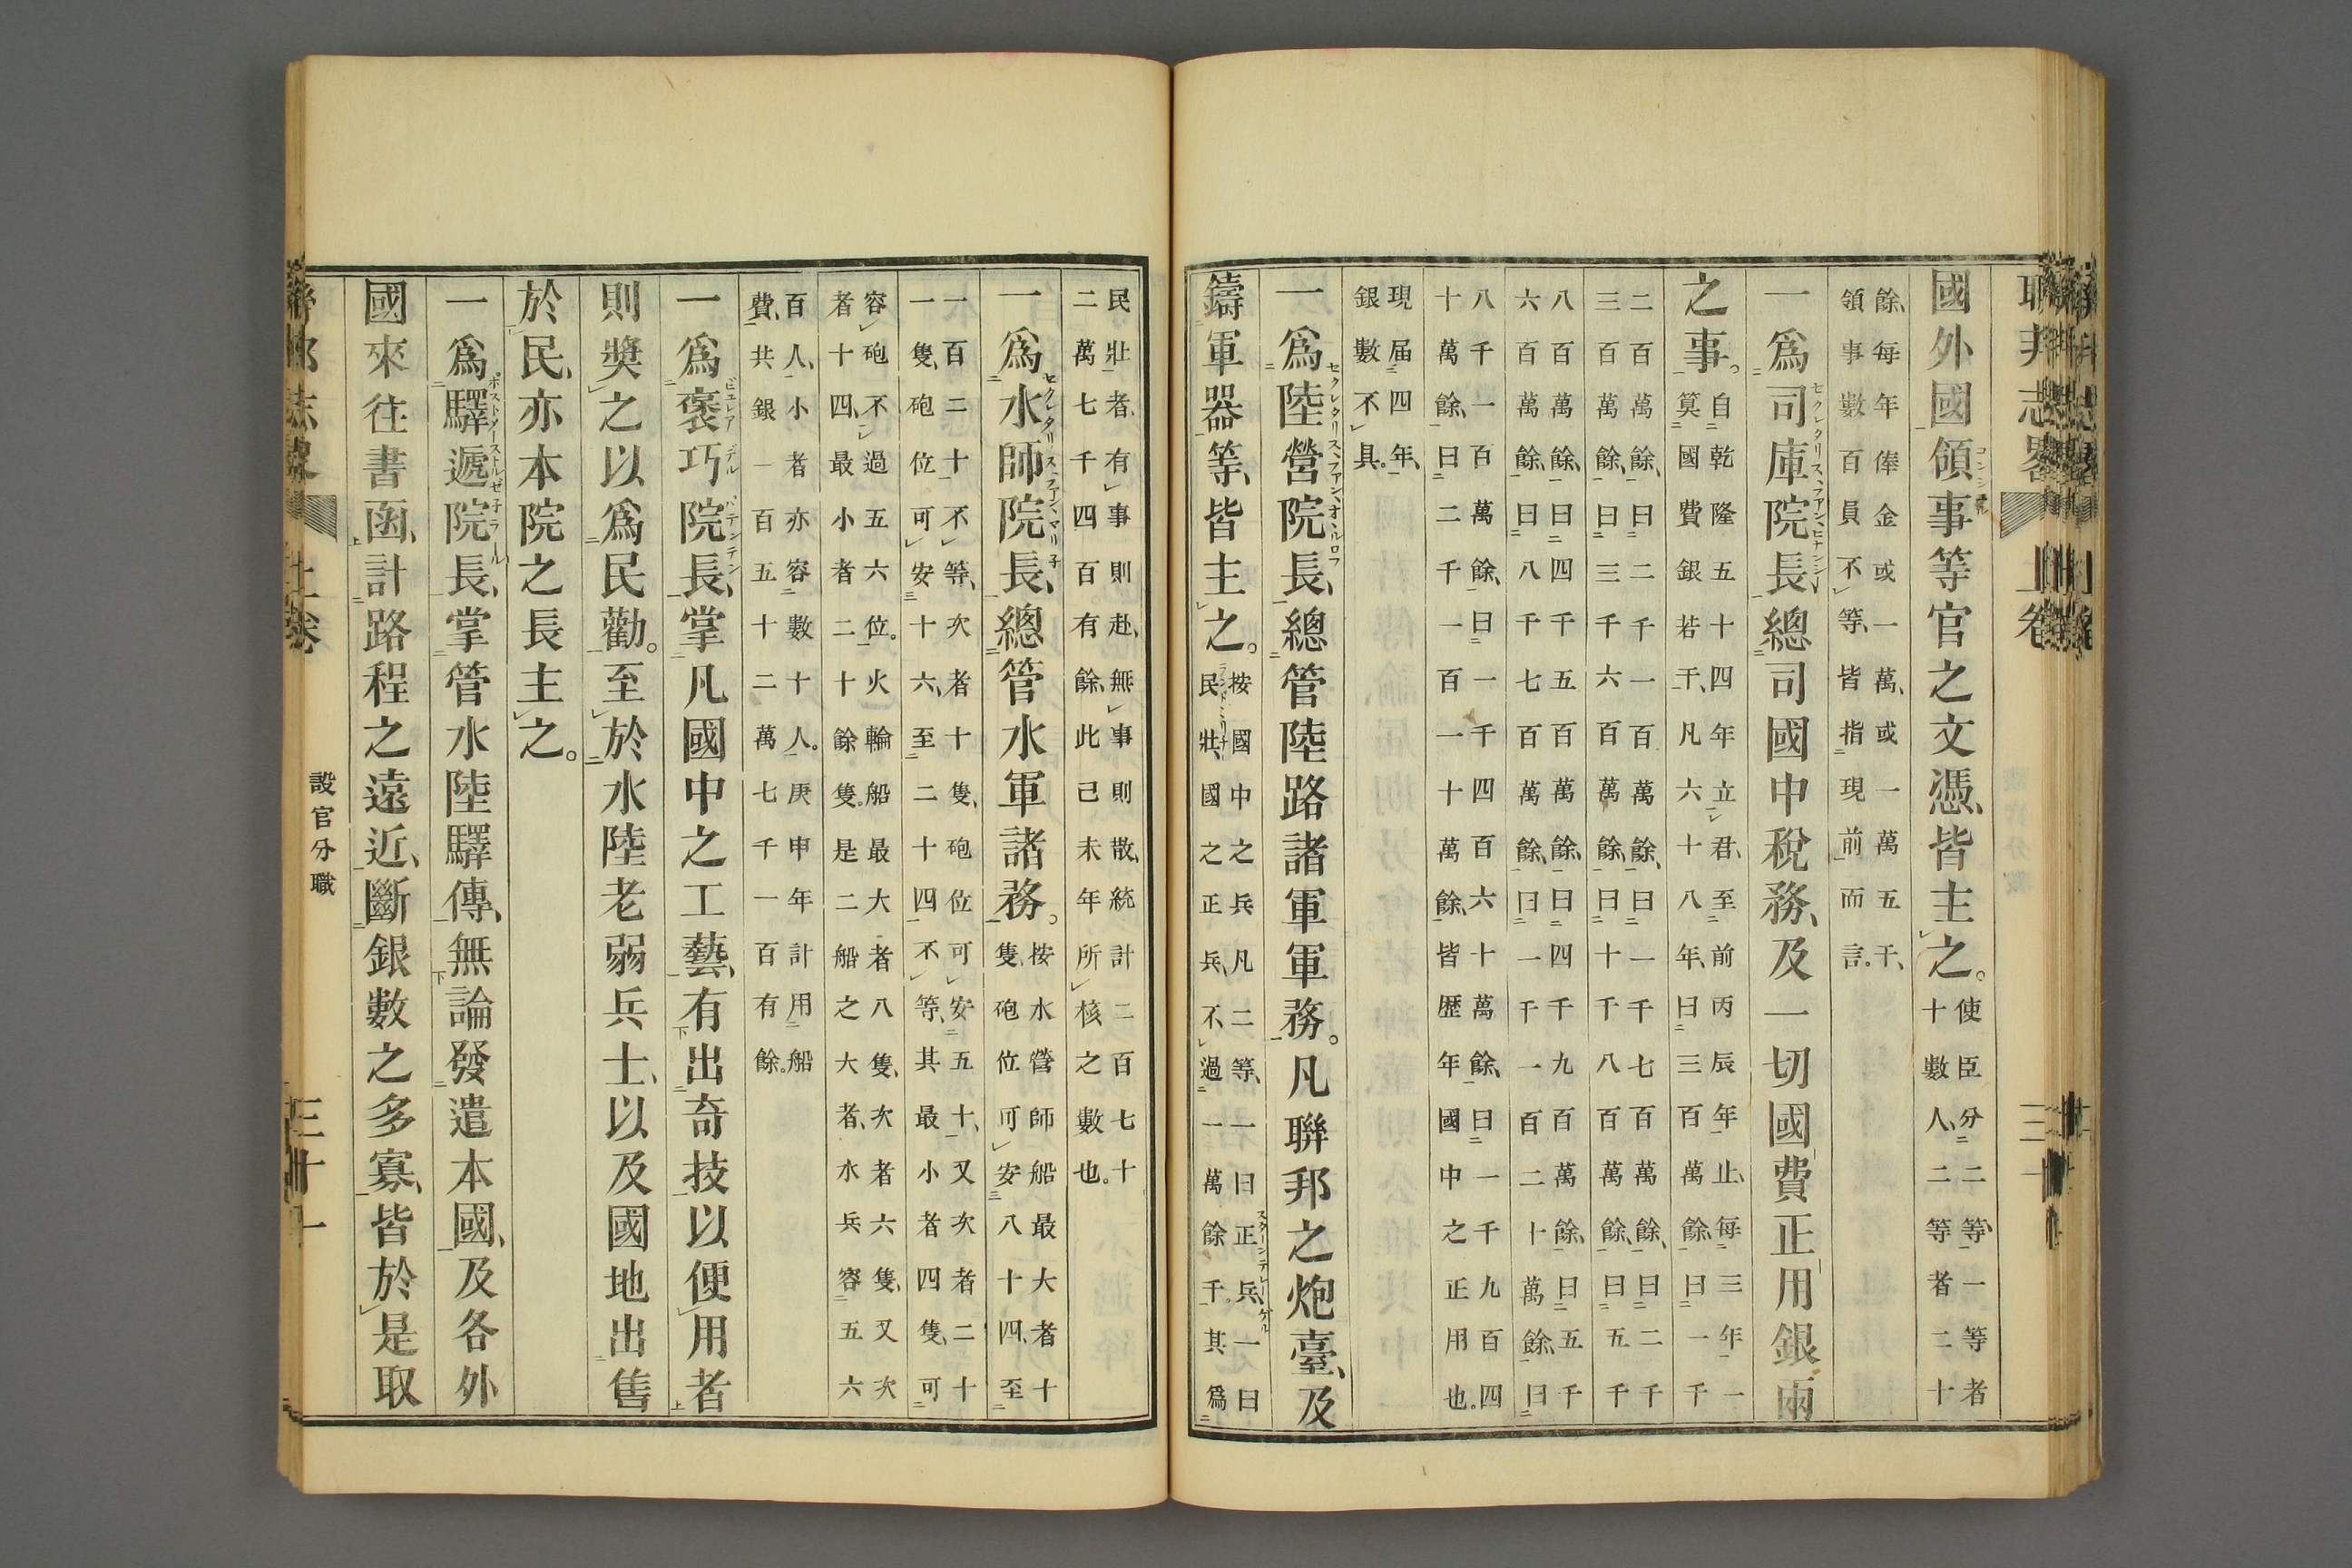 邦志畧 上卷 三十
國外國領事等官之文憑、皆主之。
使臣分二等、一等者
十數人、二等者二十
餘、每年俸金或一萬、或一萬五千、
領事數百員不等、皆指現前而言。
一爲司庫院長、總司國中稅務、及一切國費正用銀兩
之事。
自乾隆五十四年立君、至前丙辰年止、每三年一
筭國費銀若干、凡六十八年、曰三百萬餘、曰一千
二百萬餘、曰二千一百萬餘、曰一千七百萬餘、曰二千
三百萬餘、曰三千六百萬餘、曰十千八百萬餘、曰五千
八百萬餘、曰四千五百萬餘、曰四千九百萬餘、曰五千
六百萬餘、曰八千七百萬餘、曰一千一百二十萬餘、曰
八千一百萬餘、曰一千四百六十萬餘、曰一千九百四
十萬餘、曰二千一百一十萬餘、皆歴年國中之正用也。
現届四年、
銀數不具。
一爲陸營院長、總管陸路諸軍軍務。凡聯邦之炮臺、及
鑄軍器等、皆主之。
按國中之兵凡二等、一曰正兵、一曰
民壯、國之正兵、不過一萬餘千、其爲
民壯者、有事則赴、無事則散、統計二百七十
二萬七千四百有餘、此己未年所核之數也。
一爲水師院長、總管水軍諸務。
按水營師船最大者十
隻、砲位可安八十四、至
一百二十不等、次者十隻、砲位可安五十、又次者二十
一隻、砲位可安十六、至二十四不等、其最小者四隻、可
容砲不過五六位。火輪船最大者八隻、次者六隻、又次
者十四、最小者二十餘隻。是二船之大者、水兵容五六
百人、小者亦容數十人。庚申年計用船
費、共銀一百五十二萬七千一百有餘。
一爲褒巧院長、掌凡國中之工藝、有出奇技以便用者
則奬之以爲民勸。至於水陸老弱兵士、以及國地出售
於民、亦本院之長主之。
一爲驛遞院長、掌管水陸驛傳、無論發遣本國、及各外
國來往書函、計路程之遠近、斷銀數之多寡、皆於是取
聯邦志畧 上卷 設官分職 三十一